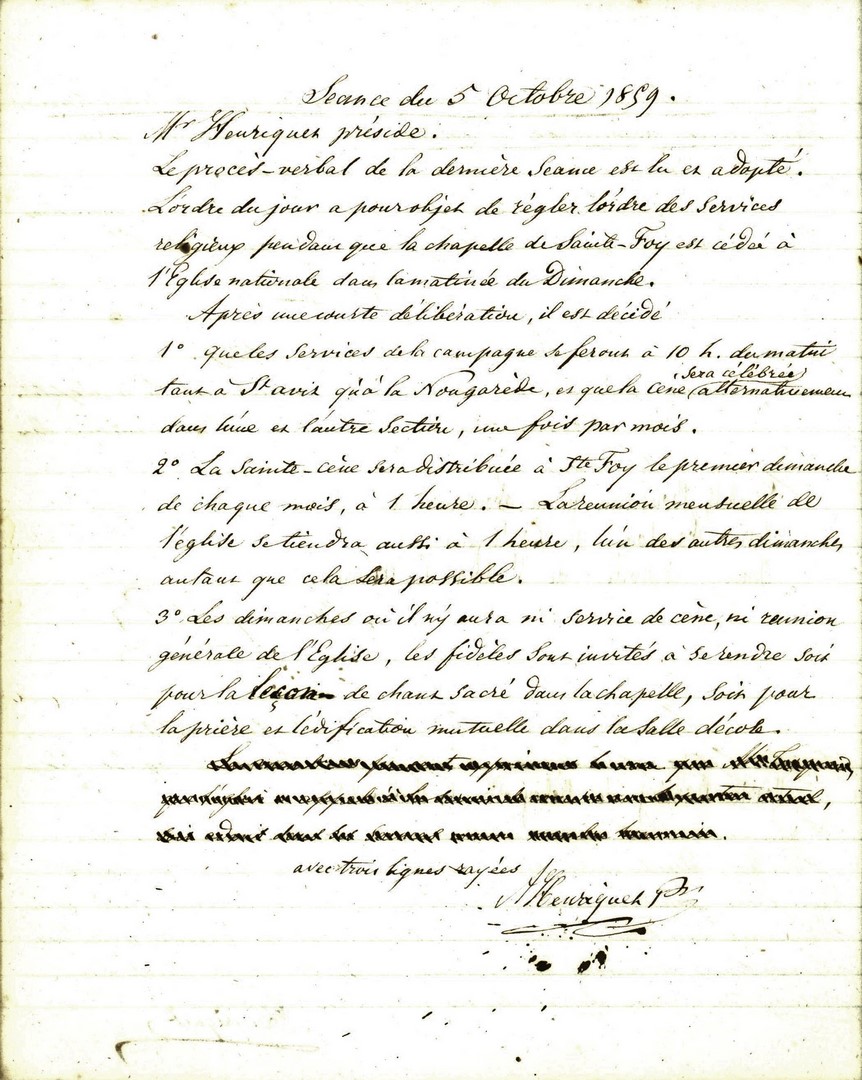 Séance du 5 Octobre 1859.
Mr Henriquet préside.
Le procès-verbal de la dernière Séance est lu et adopté.
L'ordre du jour a pour objet de régler l'ordre des services
religieux pendant que la chapelle de Sainte-Foy est cédée à
l'Eglise nationale dans la matinée du Dimanche.
Après une courte délibération, il est décidé
1° que les services de la campagne se feront à 10 h. du matin
sera célébrée
tant à St avit qu'à la Nougarède, et que la cène alternativement
dans l'une et l'autre section, une fois par mois.
2° La Sainte-cène sera distribuée à Ste Foy le premier dimanche
de chaque mois, à 1 heure. – La reunion mensuelle de
l'église se tiendra aussi à 1 heure, l'un des autres dimanches
autant que cela sera possible.
3° Les dimanches où il n'y aura ni service de cène, ni reunion
générale de l'Eglise, les fidèles sont invités à se rendre soit
pour la leçon de chant sacré dans la chapelle, soit pour
la prière et l'édification mutuelle dans la salle d'école.
avec trois lignes rayées
Henriquet